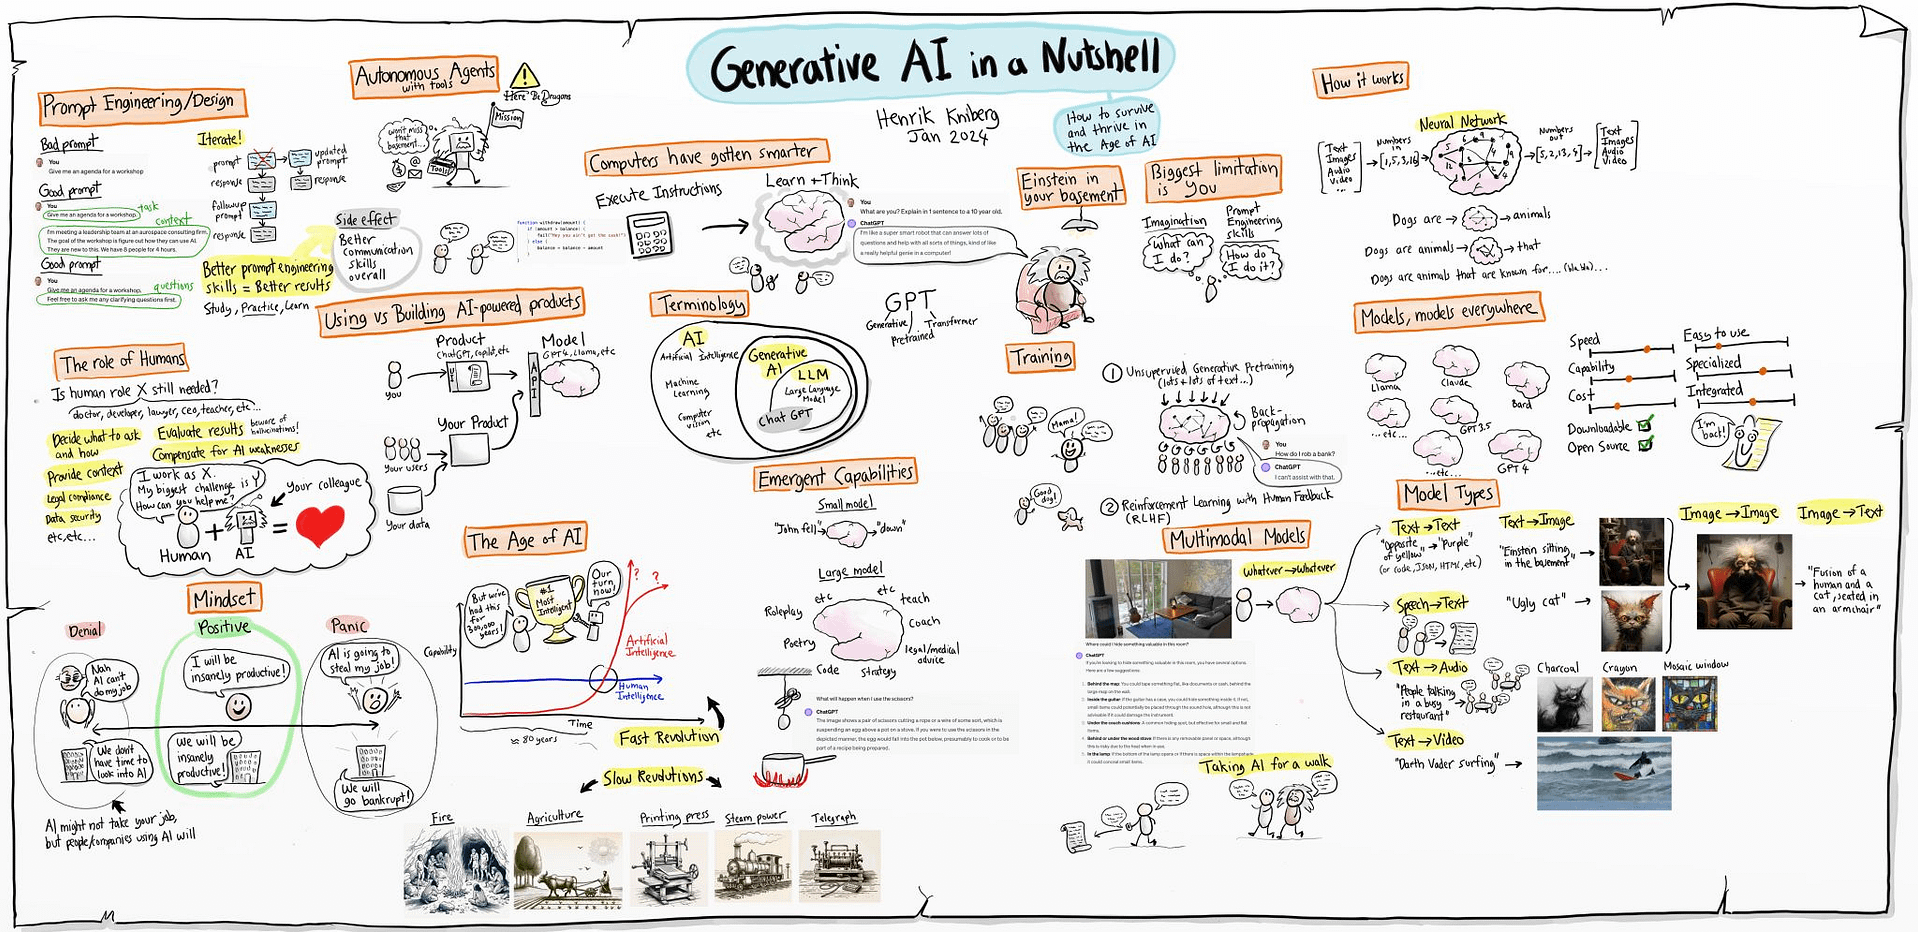 Generative AI in a Nutshell
Henrik Kniberg
Jan 2024
How to survive
and thrive in
the Age of AI
Prompt Engineering/Design
Bad prompt
You
Give me an agenda for a workshop
Good prompt
You
Give me an agenda for a workshop.
task
context
I'm meeting a leadership team at an aerospace consulting firm.
The goal of the workshop is figure out how they can use AI.
They are new to this. We have 8 people for 4 hours.
Good prompt
You
Give me an agenda for a workshop.
questions
Feel free to ask me any clarifying questions first.
Iterate!
prompt
updated
prompt
response
response
followup
prompt
response
Better prompt engineering
skills = Better results
Study, Practice, Learn
Side effect
Better
communication
skills
overall
Autonomous Agents
with tools
Here Be Dragons
Mission
won't miss
that
basement...
Tools
Computers have gotten smarter
Execute Instructions
Learn + Think
function withdraw(amount) {
if (amount > balance) {
fail("Hey you ain't got the cash!")
} else {
balance = balance - amount
You
What are you? Explain in 1 sentence to a 10 year old.
ChatGPT
I'm like a super smart robot that can answer lots of
questions and help with all sorts of things, kind of like
a really helpful genie in a computer!
Einstein in
your basement
Biggest limitation
is you
Imagination
What can
I do?
Prompt
Engineering
skills
How do
I do it?
How it works
Neural Network
Text
Images
Audio
Video
...
Numbers
in
[1,5,3,16]
Numbers
out
[5,2,13,9]
Text
Images
Audio
Video
Dogs are → animals
Dogs are animals → that
Dogs are animals that are known for.... (bla bla)...
Using vs Building AI-powered products
Product
ChatGPT, copilot, etc
Model
GPT4, Llama, etc
You
UI
API
Your Product
Your users
Your data
Terminology
AI
Artificial Intelligence
Machine
Learning
Computer
vision
etc
Generative
AI
LLM
Large Language
Model
Chat GPT
GPT
Generative
Pretrained
Transformer
Training
1 Unsupervised Generative Pretraining
(lots + lots of text...)
Back-
propagation
Mama!
You
How do I rob a bank?
ChatGPT
I can't assist with that.
Good
dog!
2 Reinforcement Learning with Human Feedback
(RLHF)
Models, models everywhere
Llama
Claude
Bard
...etc...
GPT 3.5
...etc...
GPT 4
Speed
Capability
Cost
Downloadable
Open Source
Easy to use
Specialized
Integrated
I'm
back!
The role of Humans
Is human role X still needed?
doctor, developer, lawyer, ceo, teacher, etc...
Decide what to ask
and how
Evaluate results
beware of
hallucinations!
Provide context
Compensate for AI weaknesses
Legal compliance
Data security
etc, etc...
I work as X.
My biggest challenge is Y
How can you help me?
Your colleague
Human
+
AI
=
Mindset
Denial
Positive
Panic
Nah
AI can't
do my job
I will be
insanely productive!
AI is going to
steal my job!
We don't
have time to
look into AI
We will be
insanely
productive!
We will
go bankrupt!
AI might not take your job,
but people/companies using AI will
The Age of AI
But we've
had this
for
300,000
years!
#1
Most
Intelligent
Our
turn,
now!
? ?
Capability
Artificial
Intelligence
Human
Intelligence
Time
≈ 80 years
Fast Revolution
Slow Revolutions
Fire
Agriculture
Printing press
Steam power
Telegraph
Emergent Capabilities
Small model
"John fell → "down"
Large model
etc
etc
Roleplay
teach
coach
Poetry
legal/medical
advice
Code
strategy
What will happen when I use the scissors?
ChatGPT
The image shows a pair of scissors cutting a rope or a wire of some sort, which is
suspending an egg above a pot on a stove. If you were to use the scissors in the
depicted manner, the egg would fall into the pot below, presumably to cook or to be
part of a recipe being prepared.
Multimodal Models
Whatever → Whatever
Where could I hide something valuable in this room?
ChatGPT
If you're looking to hide something valuable in this room, you have several options.
Here are a few suggestions:
Taking AI for a walk
Model Types
Text → Text
"Opposite
of yellow" → "Purple"
(or code, JSON, HTML, etc)
Text → Image
"Einstein sitting
in the basement"
"Ugly cat"
Image → Image
Image → Text
"Fusion of a
human and a
cat, seated in
an armchair"
Speech → Text
Text → Audio
"People talking
in a busy
restaurant"
Charcoal
Crayon
Mosaic window
Text → Video
"Darth Vader surfing"